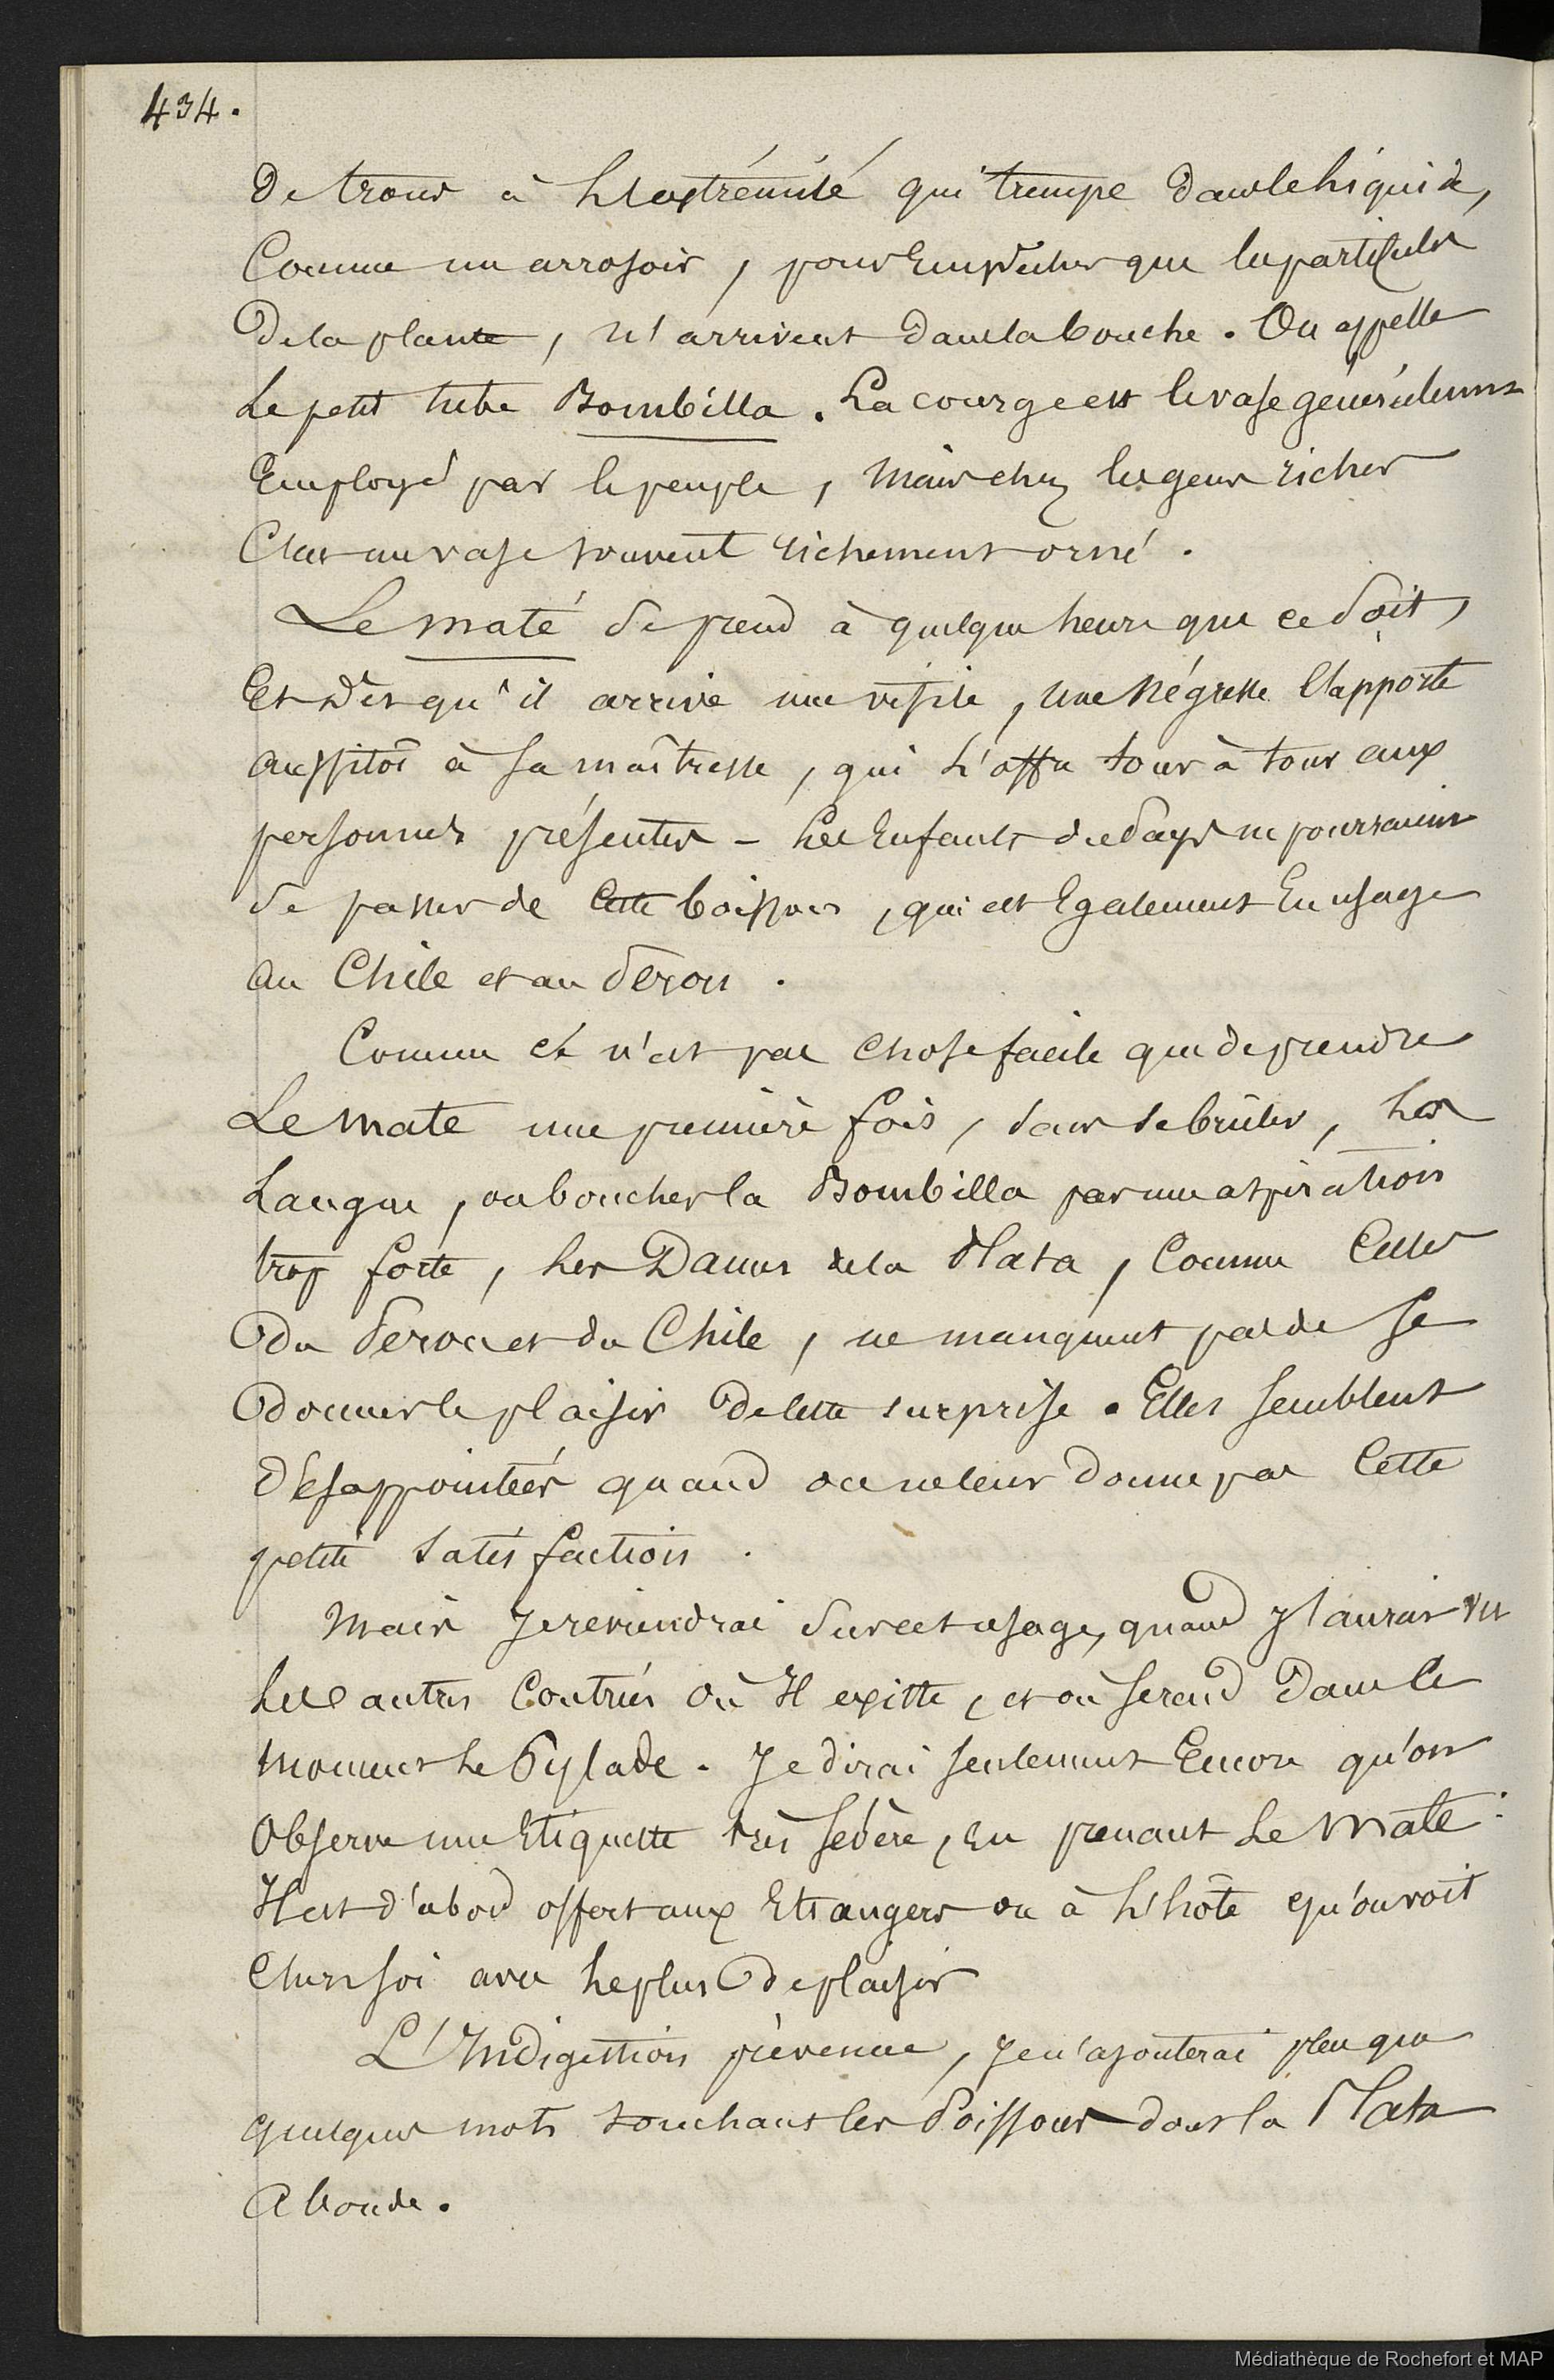 434.
de trous à l'extrémité qui trempe dans le liquide,
Comme un arrosoir, pour Empêcher que les particules
de la plante, n'arrivent dans la bouche. On appelle
Le petit tube Bombilla. La courge est le vase généralement
Employé par le peuple, mais chez les gens riches
C'est un vase souvent richement orné.
Le maté se prend à quelque heure que ce soit,
Et dès qu'il arrive une visite, une Négresse l'apporte
aussitôt à sa maîtresse, qui l'offre tour à tour aux
personnes présentes - Les Enfants du Pays ne pourraient
se passer de Cette boisson, qui est Egalement En usage
au Chile et au Pérou.
Comme Ce n'est pas chose facile que de prendre
Le mate une première fois, sans se brûler, la
Langue, ou boucher la Bombilla par une aspiration
trop forte, les Dames de la Plata, Comme Celles
du Perou et du Chile, ne manquent pas de se
donner le plaisir de Cette surprise. Elles semblent
désappointées quand on ne leur donne pas Cette
petite satisfaction.
Mais Je reviendrai sur cet usage, quand J'aurais vu
Les autres Contrées où Il existe, et où se rend dans le
moment le Pylade. Je dirai seulement Encore qu'on
Observe une Etiquette très sévère, en prenant Le maté:
Il est d'abord offert aux Etrangers ou à L'hôte qu'on voit
Chez soi avec le plus de plaisir
L'Indigestion prévenue, Je n'ajouterai plus que
quelques mots touchant les Poissons dont la Plata
Abonde.
Médiathèque de Rochefort et MAP